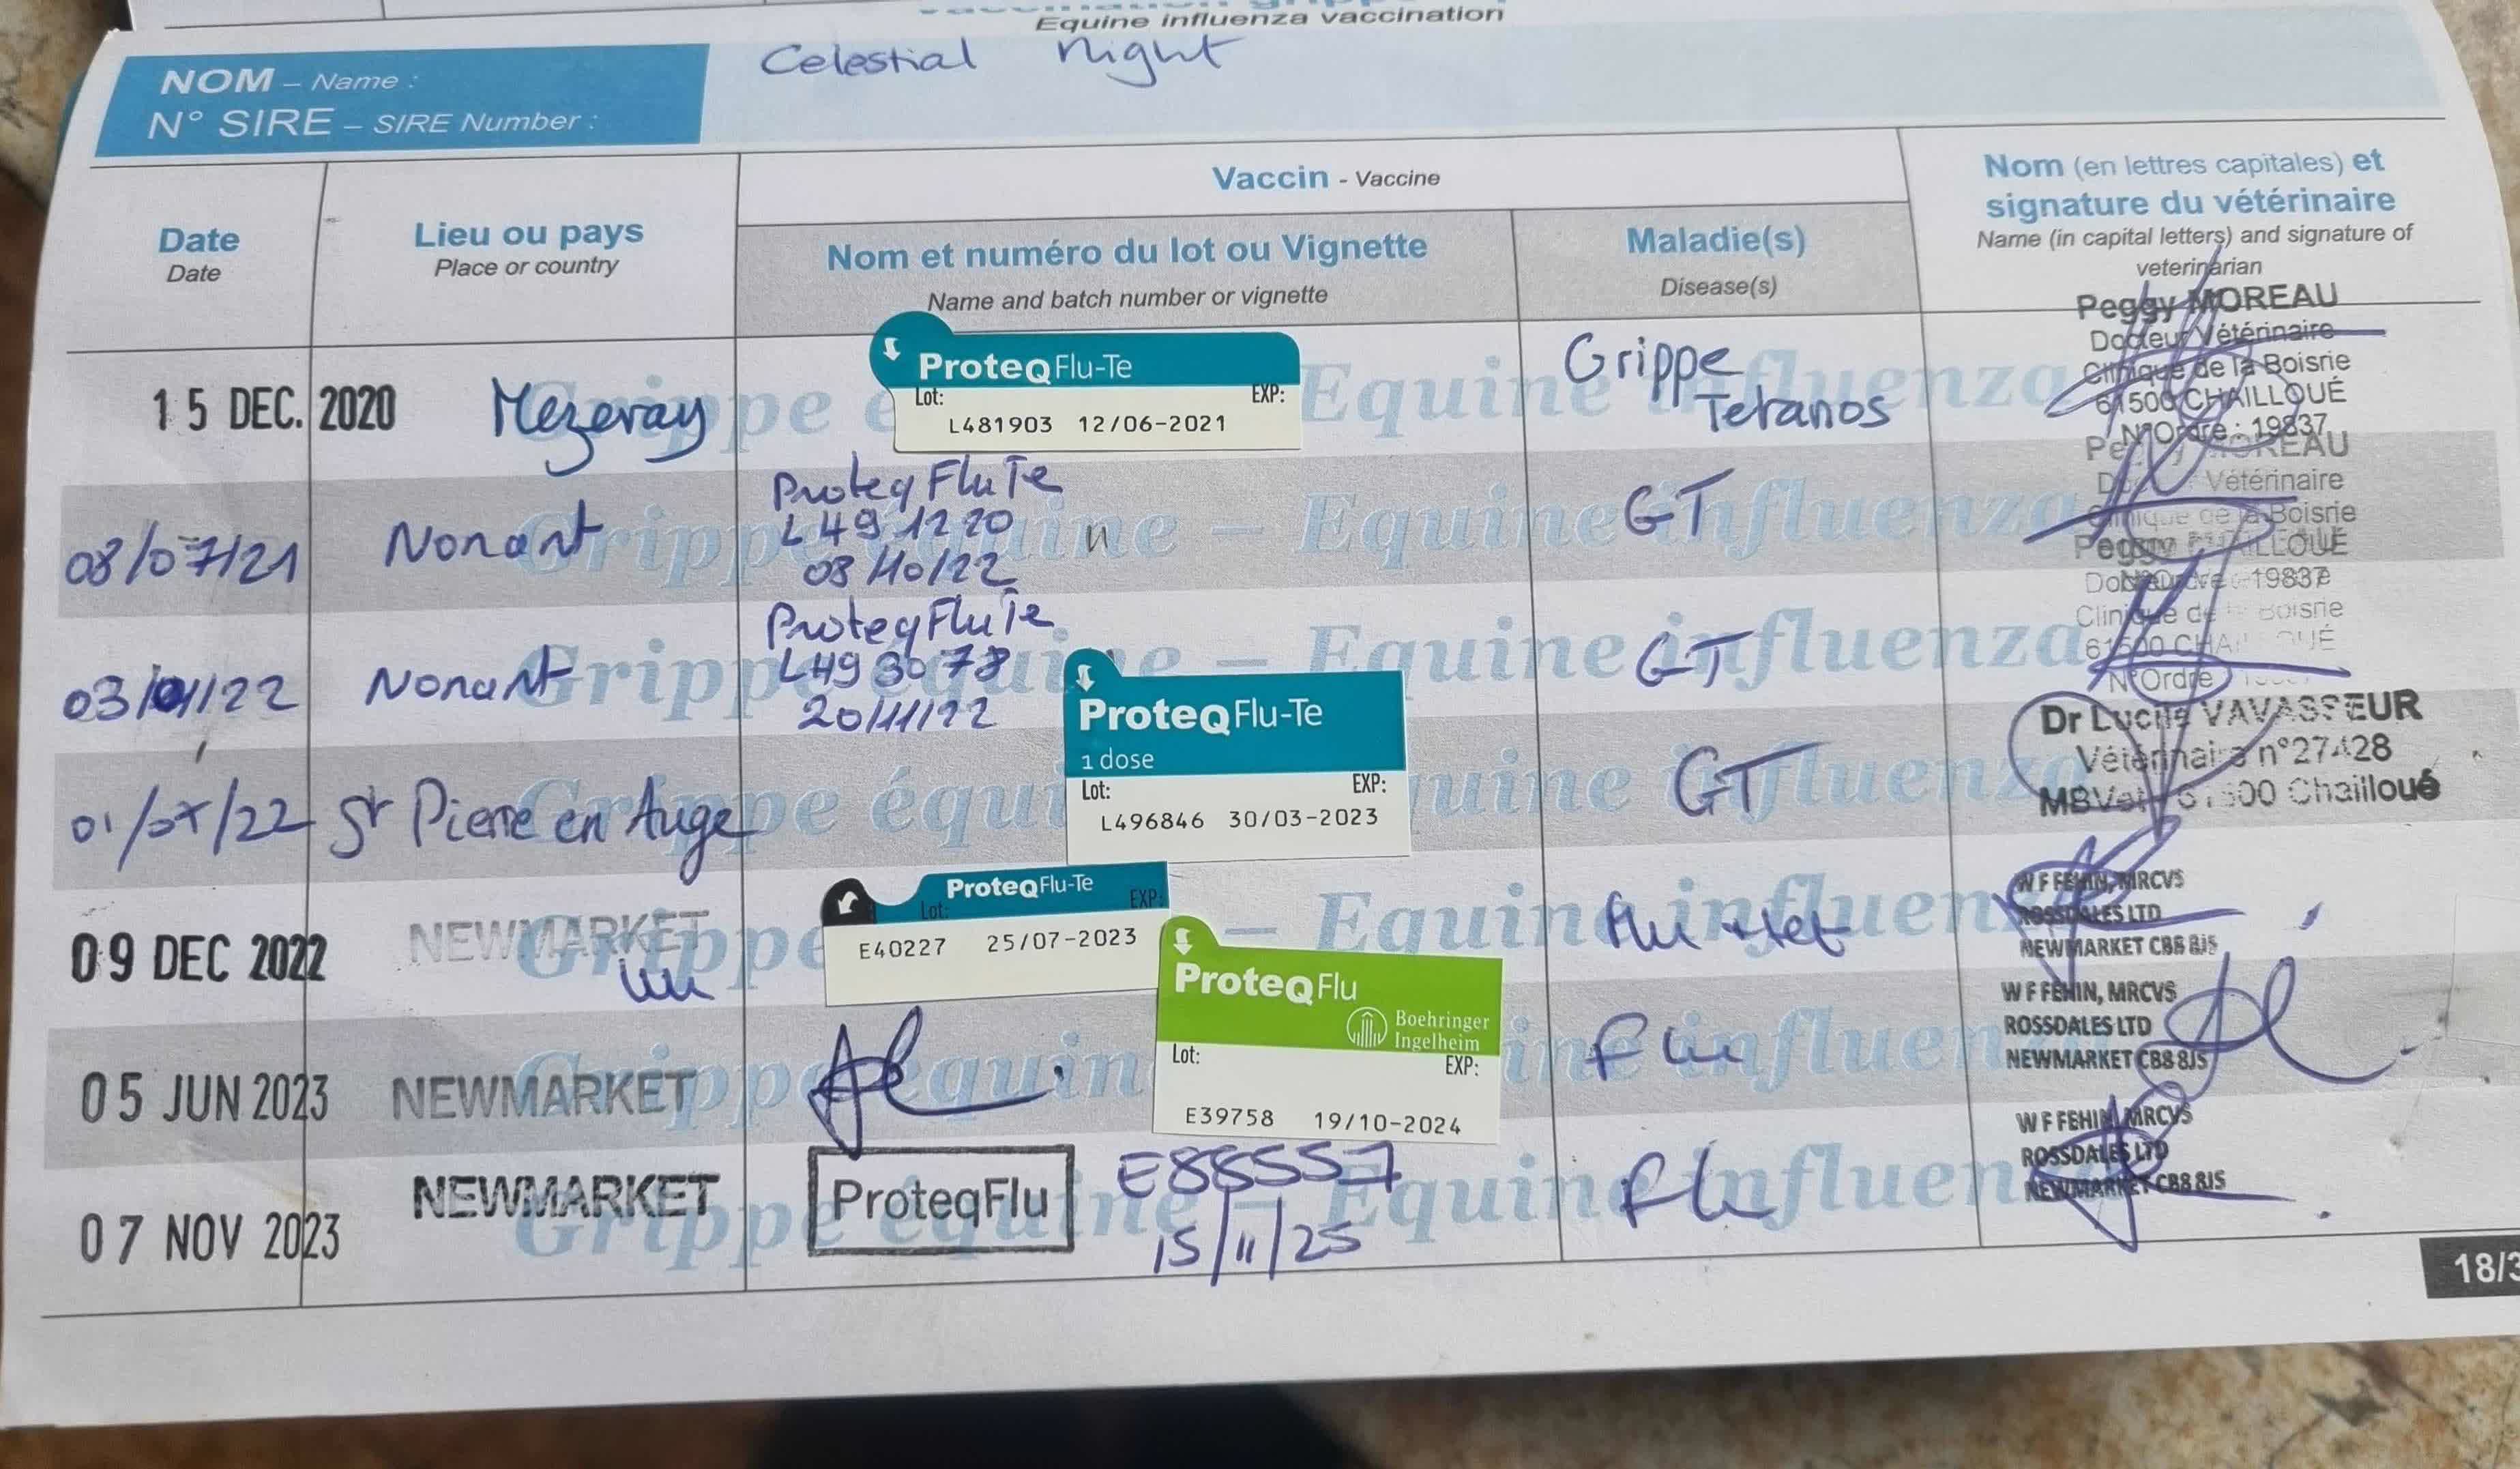 Equine influenza vaccination
NOM – Name :
Celestial Night
N° SIRE – SIRE Number :
Date
Date
Lieu ou pays
Place or country
Vaccin - Vaccine
Nom et numéro du lot ou Vignette
Name and batch number or vignette
Maladie(s)
Disease(s)
Nom (en lettres capitales) et
signature du vétérinaire
Name (in capital letters) and signature of
veterinarian
15 DEC. 2020
Mezeray
ProteqFlu-Te
Lot: EXP:
L481903 12/06-2021
Grippe
Tetanos
Peggy MOREAU
Docteur Vétérinaire
Clinique de la Boisrie
61500 CHAILLOUÉ
N°Ordre : 19837
08/07/21
Nonant
Proteq Flu Te
L491220
08/10/22
GT
MOREAU
Vétérinaire
Clinique de la Boisrie
19837
03/01/22
Nonant
Proteq Flu Te
L493078
20/11/22
GT
Peggy
Clinique de la Boisrie
61500
N°Ordre
01/07/22
St Pierre en Auge
ProteqFlu-Te
1 dose
Lot: EXP:
L496846 30/03-2023
GT
Dr Lucile VAVASSEUR
Vétérinaire n°27428
Chailloué
09 DEC 2022
NEWMARKET
ProteqFlu-Te
Lot: EXP:
E40227 25/07-2023
Flu + tet
W F FEHIN, MRCVS
ROSSDALES LTD
NEWMARKET CB8 8JS
05 JUN 2023
NEWMARKET
ProteqFlu
Boehringer
Ingelheim
Lot: EXP:
E39758 19/10-2024
Flu
W F FEHIN, MRCVS
ROSSDALES LTD
NEWMARKET CB8 8JS
07 NOV 2023
NEWMARKET
ProteqFlu
E88557
15/11/25
Flu
W F FEHIN, MRCVS
ROSSDALES LTD
NEWMARKET CB8 8JS
Grippe équine – Equine influenza
Grippe équine – Equine influenza
Grippe équine – Equine influenza
Grippe équine – Equine influenza
Grippe équine – Equine influenza
Grippe équine – Equine influenza
Grippe équine – Equine influenza
18/3